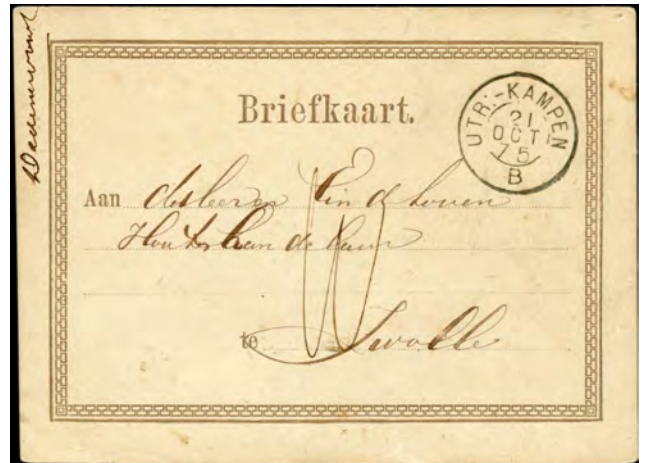 Dedemsvaart
Briefkaart.
UTR:-KAMPEN
21
OCT
75
B
Aan de Heeren Eindhoven
Houthandelaren
10
te Zwolle